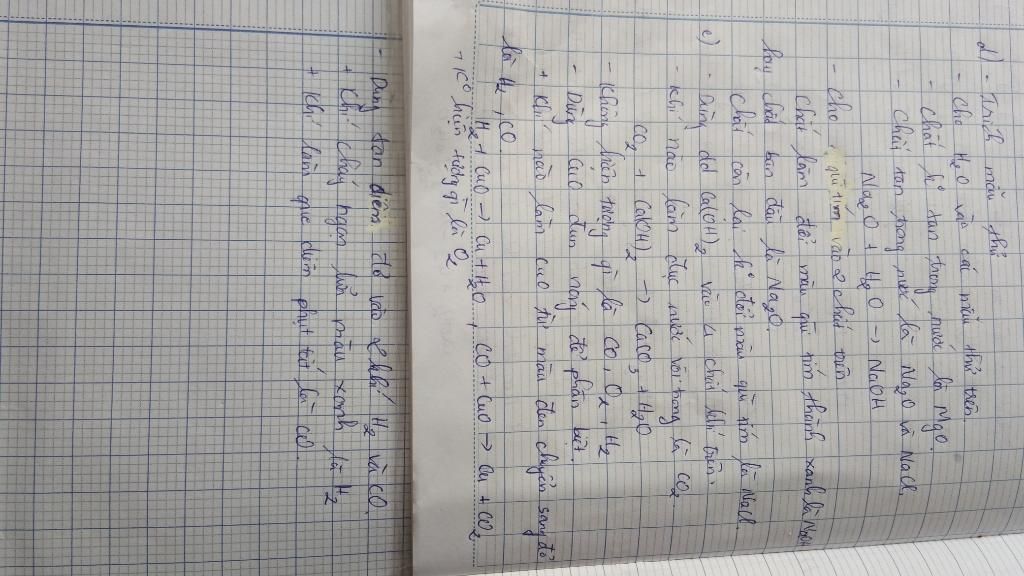 d) - Trích mẫu thử
- Cho H₂O vào các mẫu thử trên.
- Chất k° tan trong nước là MgO.
- Chất tan trong nước là Na₂O và NaCl.
Na₂O + H₂O → NaOH
- Cho quì tím vào 2 chất trên
Chất làm đổi màu quì tím thành xanh là NaOH
hay chất ban đầu là Na₂O.
Chất còn lại k° đổi màu quì tím là NaCl.
e) - Dùng dd Ca(OH)₂ vào 4 chất khí trên.
- Khí nào làm đục nước vôi trong là CO₂
CO₂ + Ca(OH)₂ → CaCO₃ + H₂O
- Không hiện tượng gì là CO, O₂, H₂
- Dùng CuO đun nóng để phân biệt.
+ Khí nào làm CuO từ màu đen chuyển sang đỏ
là H₂, CO
H₂ + CuO → Cu + H₂O, CO + CuO → Cu + CO₂
+ K° hiện tượng gì là O₂
- Dùng tàn diêm đỏ vào 2 khí H₂ và CO.
+ Khí cháy ngọn lửa màu xanh là H₂
+ Khí làm que diêm phụt tắt là CO.